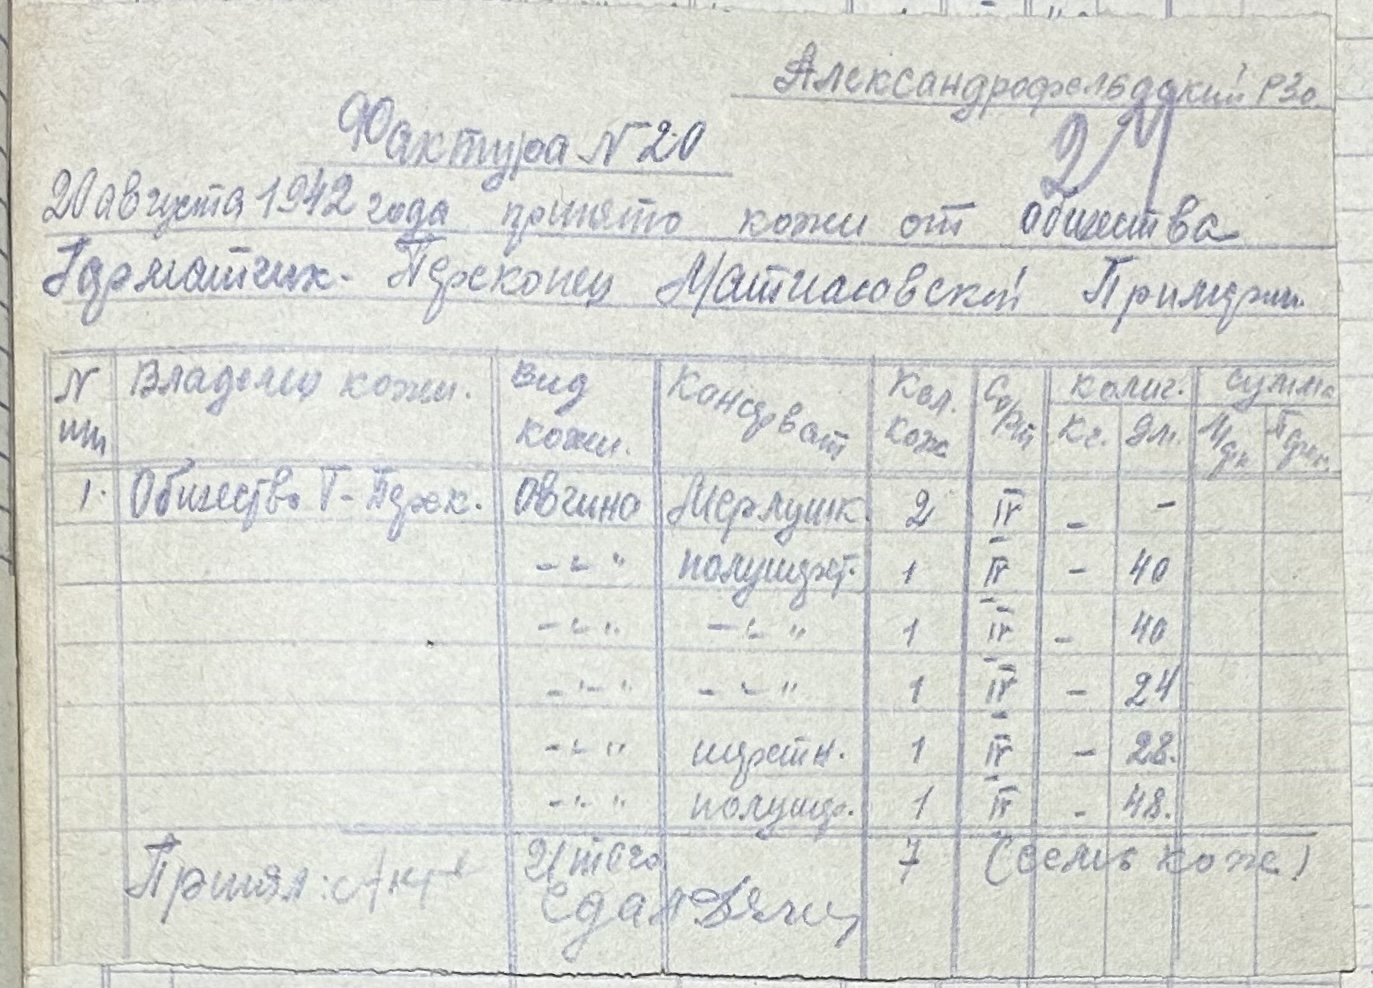 Александрофельдский РЗо
24
Фактура N 20
20 августа 1942 года принято кожи от общества
Герматчик- Переконец Матиасовской Примерии
N пп Владелец кожи. Вид кожи. Консерват Кол. кож Сорт колич. сумма
кг. дм. М
1. Общество Г-Перек. Овчина Мерлушк. 2 IV - -
-"- полушерст. 1 IV - 40
-"- -"- 1 IV - 40
-"- -"- 1 IV - 24
-"- шерстн. 1 IV - 28.
-"- полушер. 1 IV - 48.
Итого 7 (семь кож)
Принял: Сдал